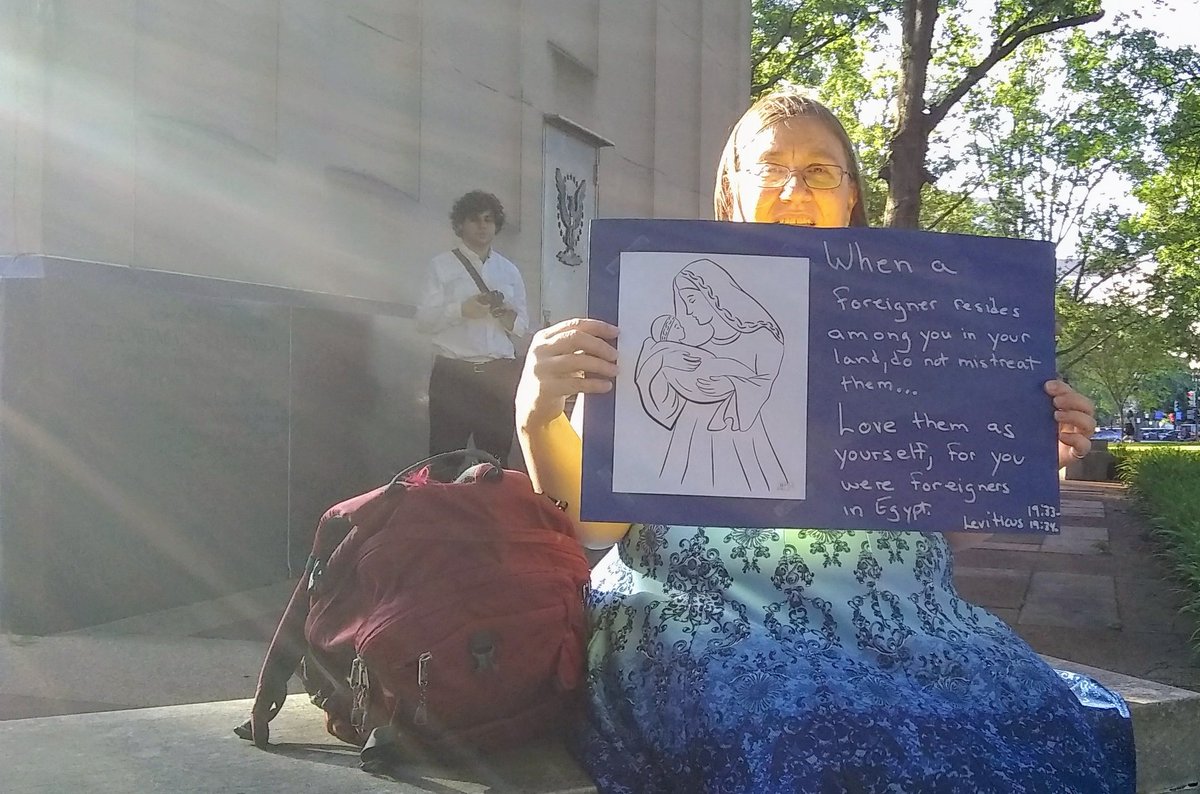 When a
foreigner resides
among you in your
land, do not mistreat
them...
Love them as
yourself, for you
were foreigners
in Egypt.
Leviticus 19:33-
19:34